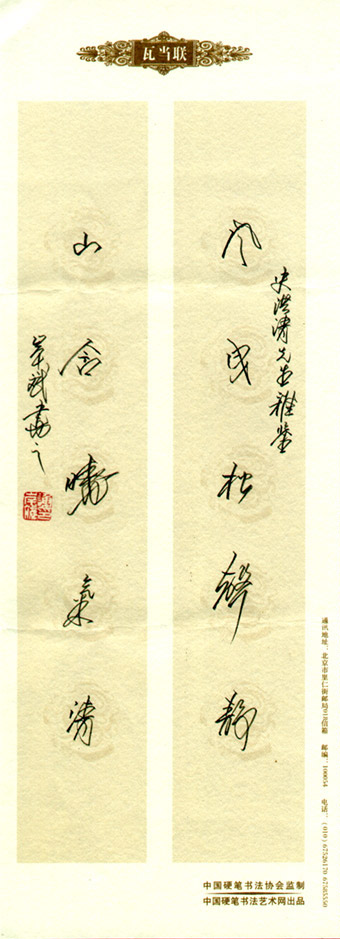 瓦当联
史 先生雅鉴
风曳松 静
山含 氣清
书之
通讯地址：北京市里仁街邮局 信箱 邮编：100054 电话：（010）67526170 67585550
中国硬笔书法协会监制
中国硬笔书法艺术网出品